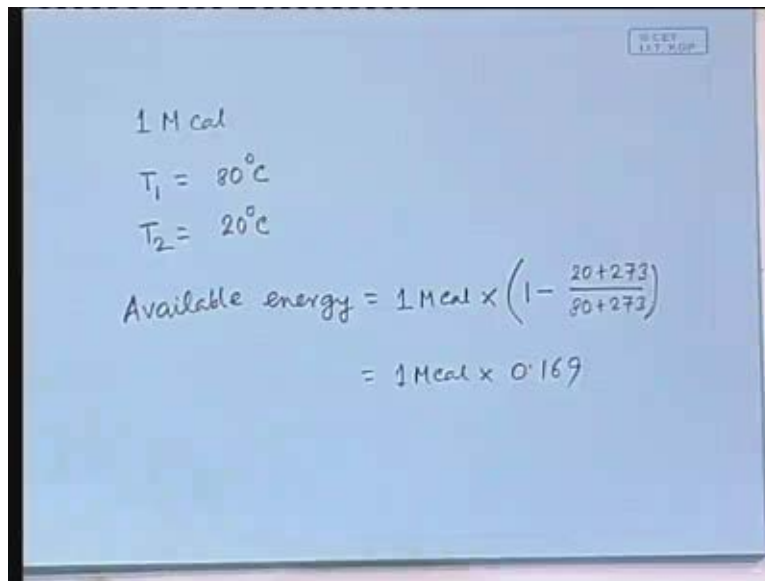 © CET
I.I.T. KGP
1 M cal
T₁ = 80°C
T₂ = 20°C
Available energy = 1 Mcal × (1 − (20+273)/(80+273))
= 1 Mcal × 0.169